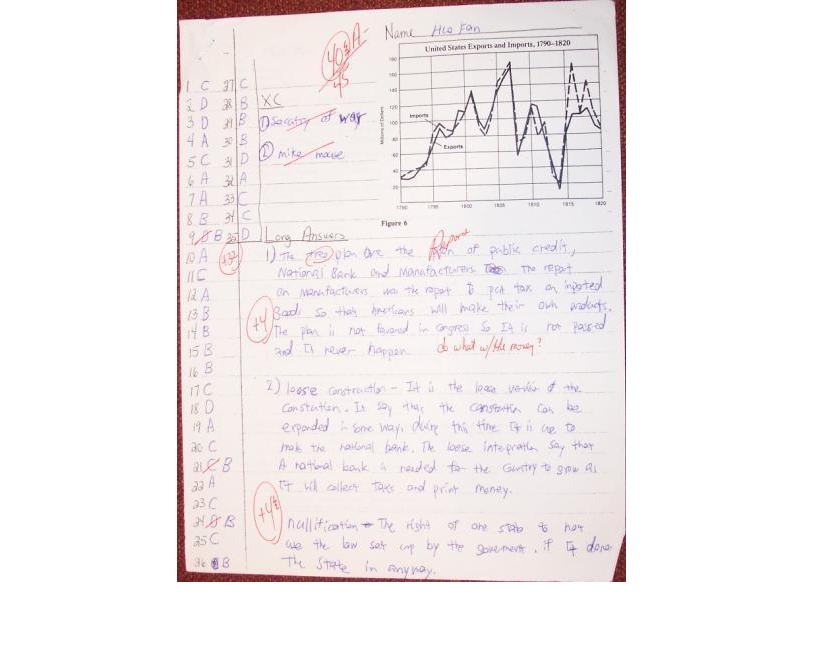 Name Hao Fan
40½ A-
45
United States Exports and Imports, 1790–1820
Millions of Dollars
180
160
140
120
100
80
60
40
20
Imports
Exports
1790 1795 1800 1805 1810 1815 1820
Figure 6
1 C 27 C
2 D 28 B XC
3 D 29 B 1) of war
4 A 30 B
5 C 31 D 2) mike mouse
6 A 32 A
7 A 33 C
8 B 34 C
9 B 35 D Long Answers
10 A +32 1) The plan are the Report of public credit,
11 C National Bank and Manufacturers The report
12 A on manufacturers was the report to put tax on inported
13 B Goods so that Americans will make their own products.
14 B +4 The plan is not favored in congress so It is not passed
15 B and It never happen. do what w/the money?
16 B
17 C 2) loose construction - It is the loose version of the
18 D Constution. It say that the constution can be
19 A expanded in some way. during this time It is use to
20 C make the national bank. The loose say that
21 B A national bank is needed for the country to grow as
22 A It will collect taxs and print money.
23 C
24 B +4½ nullification - The right of one state to not
25 C use the law set up by the goverment. if It
26 B The State in anyway.